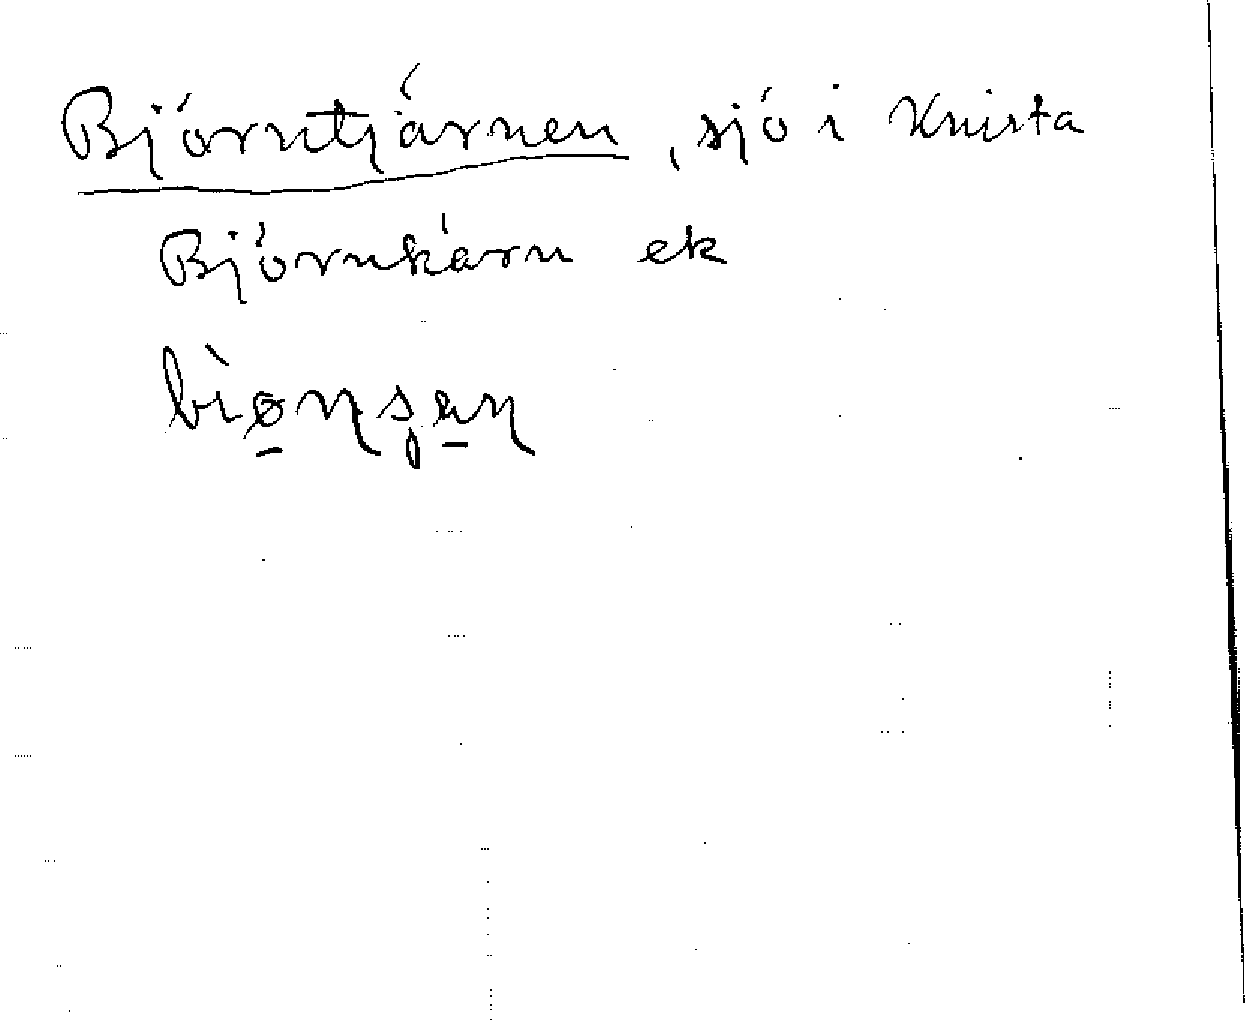 Björntjärnen, sjö i Knista
Björnkärn ek